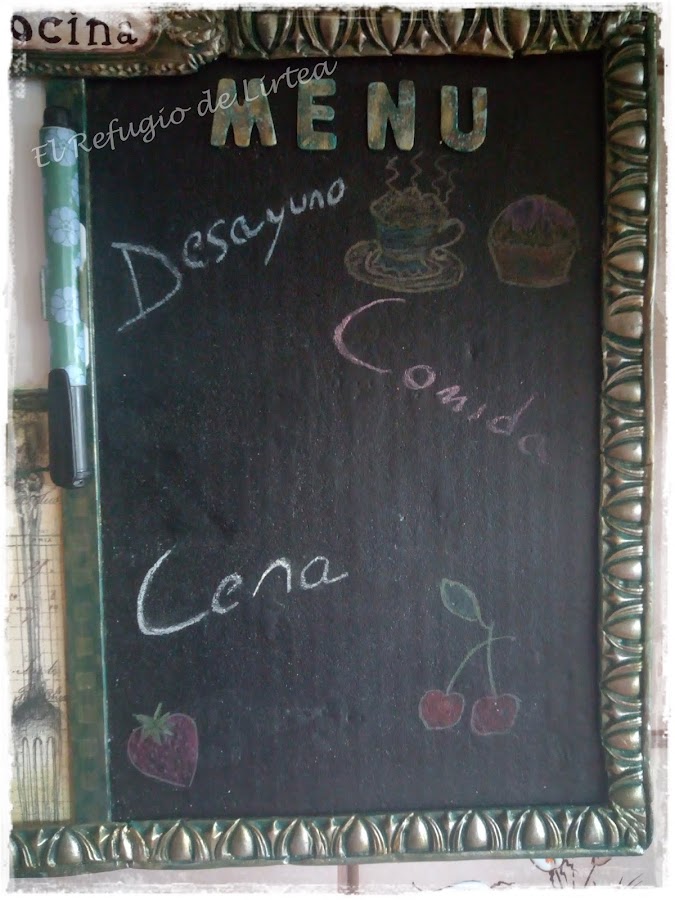 ocina
El Refugio de Lirtea
MENU
Desayuno
Comida
Cena